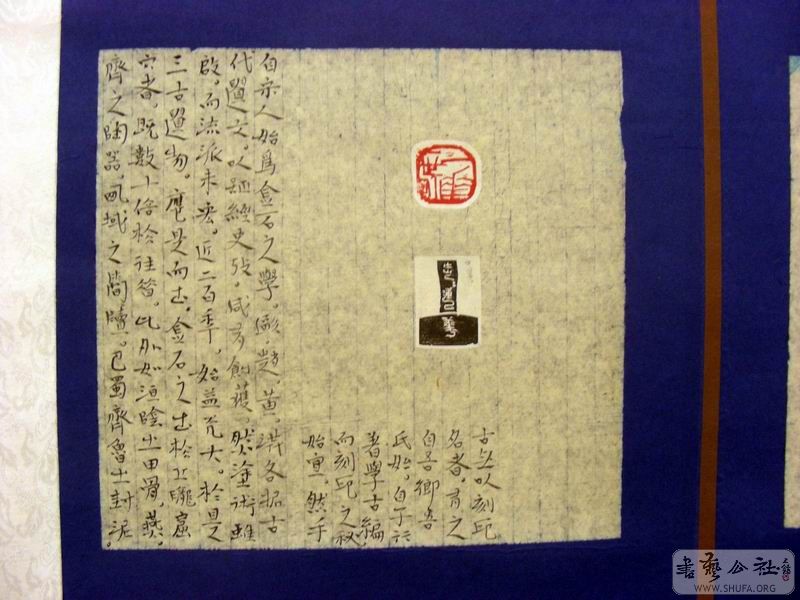 古亡以刻印
名者。有之
自吾鄉吾
氏始。自子行
著學古編
而刻印之
始宣。然手
自宋人始爲金石之學。歐。趙。黃。洪各据古
代遺文。以經史攷。咸有創獲。然塗術雖
啟。而流派未宏。近二百年。始益光大。於是
三古遺物。應是而出。金石之出於丘隴窟
穴者。既數十倍於往昔。此外如洹陰之甲骨。燕
齊之陶器。西域之簡牘。巴蜀齊魯之封泥。
書藝公社
WWW.SHUFA.ORG